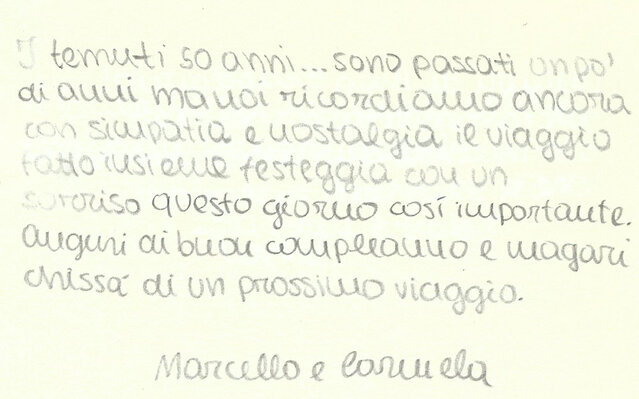 I temuti 50 anni... sono passati un po'
di anni ma noi ricordiamo ancora
con simpatia e nostalgia il viaggio
fatto insieme festeggia con un
sorriso questo giorno così importante.
Auguri di buon compleanno e magari
chissà di un prossimo viaggio.
Marcello e Carmela